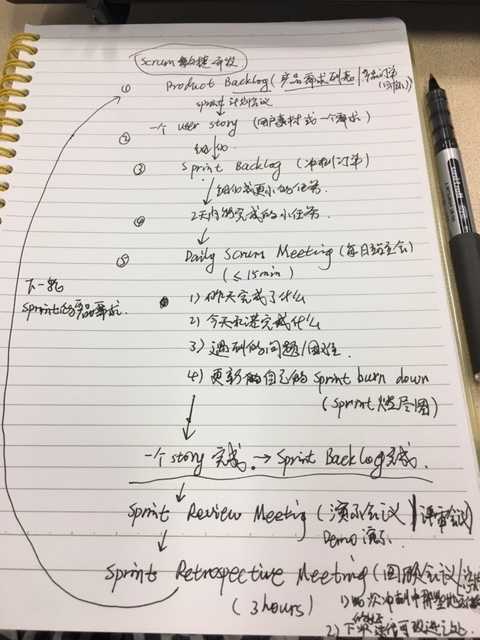 Scrum敏捷开发
① Product Backlog (产品需求列表/
sprint 计划会议
② 一个 user story (用户素材或一个需求)
细化
③ Sprint Backlog (冲刺订单)
细化成更小的任务
④ 2天内能完成的小任务
⑤ Daily Scrum Meeting (每日站立会)
(≤15min)
1) 昨天完成了什么
2) 今天承诺完成什么
3) 遇到的问题/困难.
4) 更新的自己的 Sprint burn down
(Sprint燃尽图)
下一轮
sprint的产品需求
一个story 完成. → Sprint Backlog完成.
Sprint Review Meeting (演示会议/评审会议)
Demo演示.
Sprint Retrospective Meeting (回顾会议/
(3hours)
1)
2)